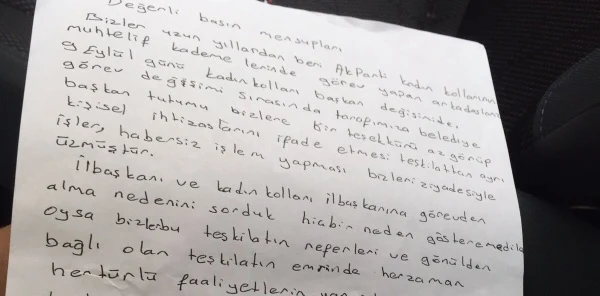 Değerli basın mensupları
Bizler uzun yıllardan beri AkParti kadın kollarının
muhtelif kademelerinde görev yapan arkadaşları
9 Eylül günü kadın kolları başkan değişimide,
görev değişimi sırasında tarafımıza belediye
başkan tutumu bizlere bir teşekkürü az görüp
kişisel ihtizaslarını ifade etmesi teşkilattan ayrı
işler, habersiz işlem yapması bizleri ziyadesiyle
üzmüştür.
İlbaşkanı ve kadın kolları ilbaşkanına görevden
alma nedenini sorduk hiçbir neden gösteremediler
Oysa bizler bu teşkilatın neferleri ve gönülden
bağlı olan teşkilatın emrinde herzaman
hertürlü faaliyetlerin